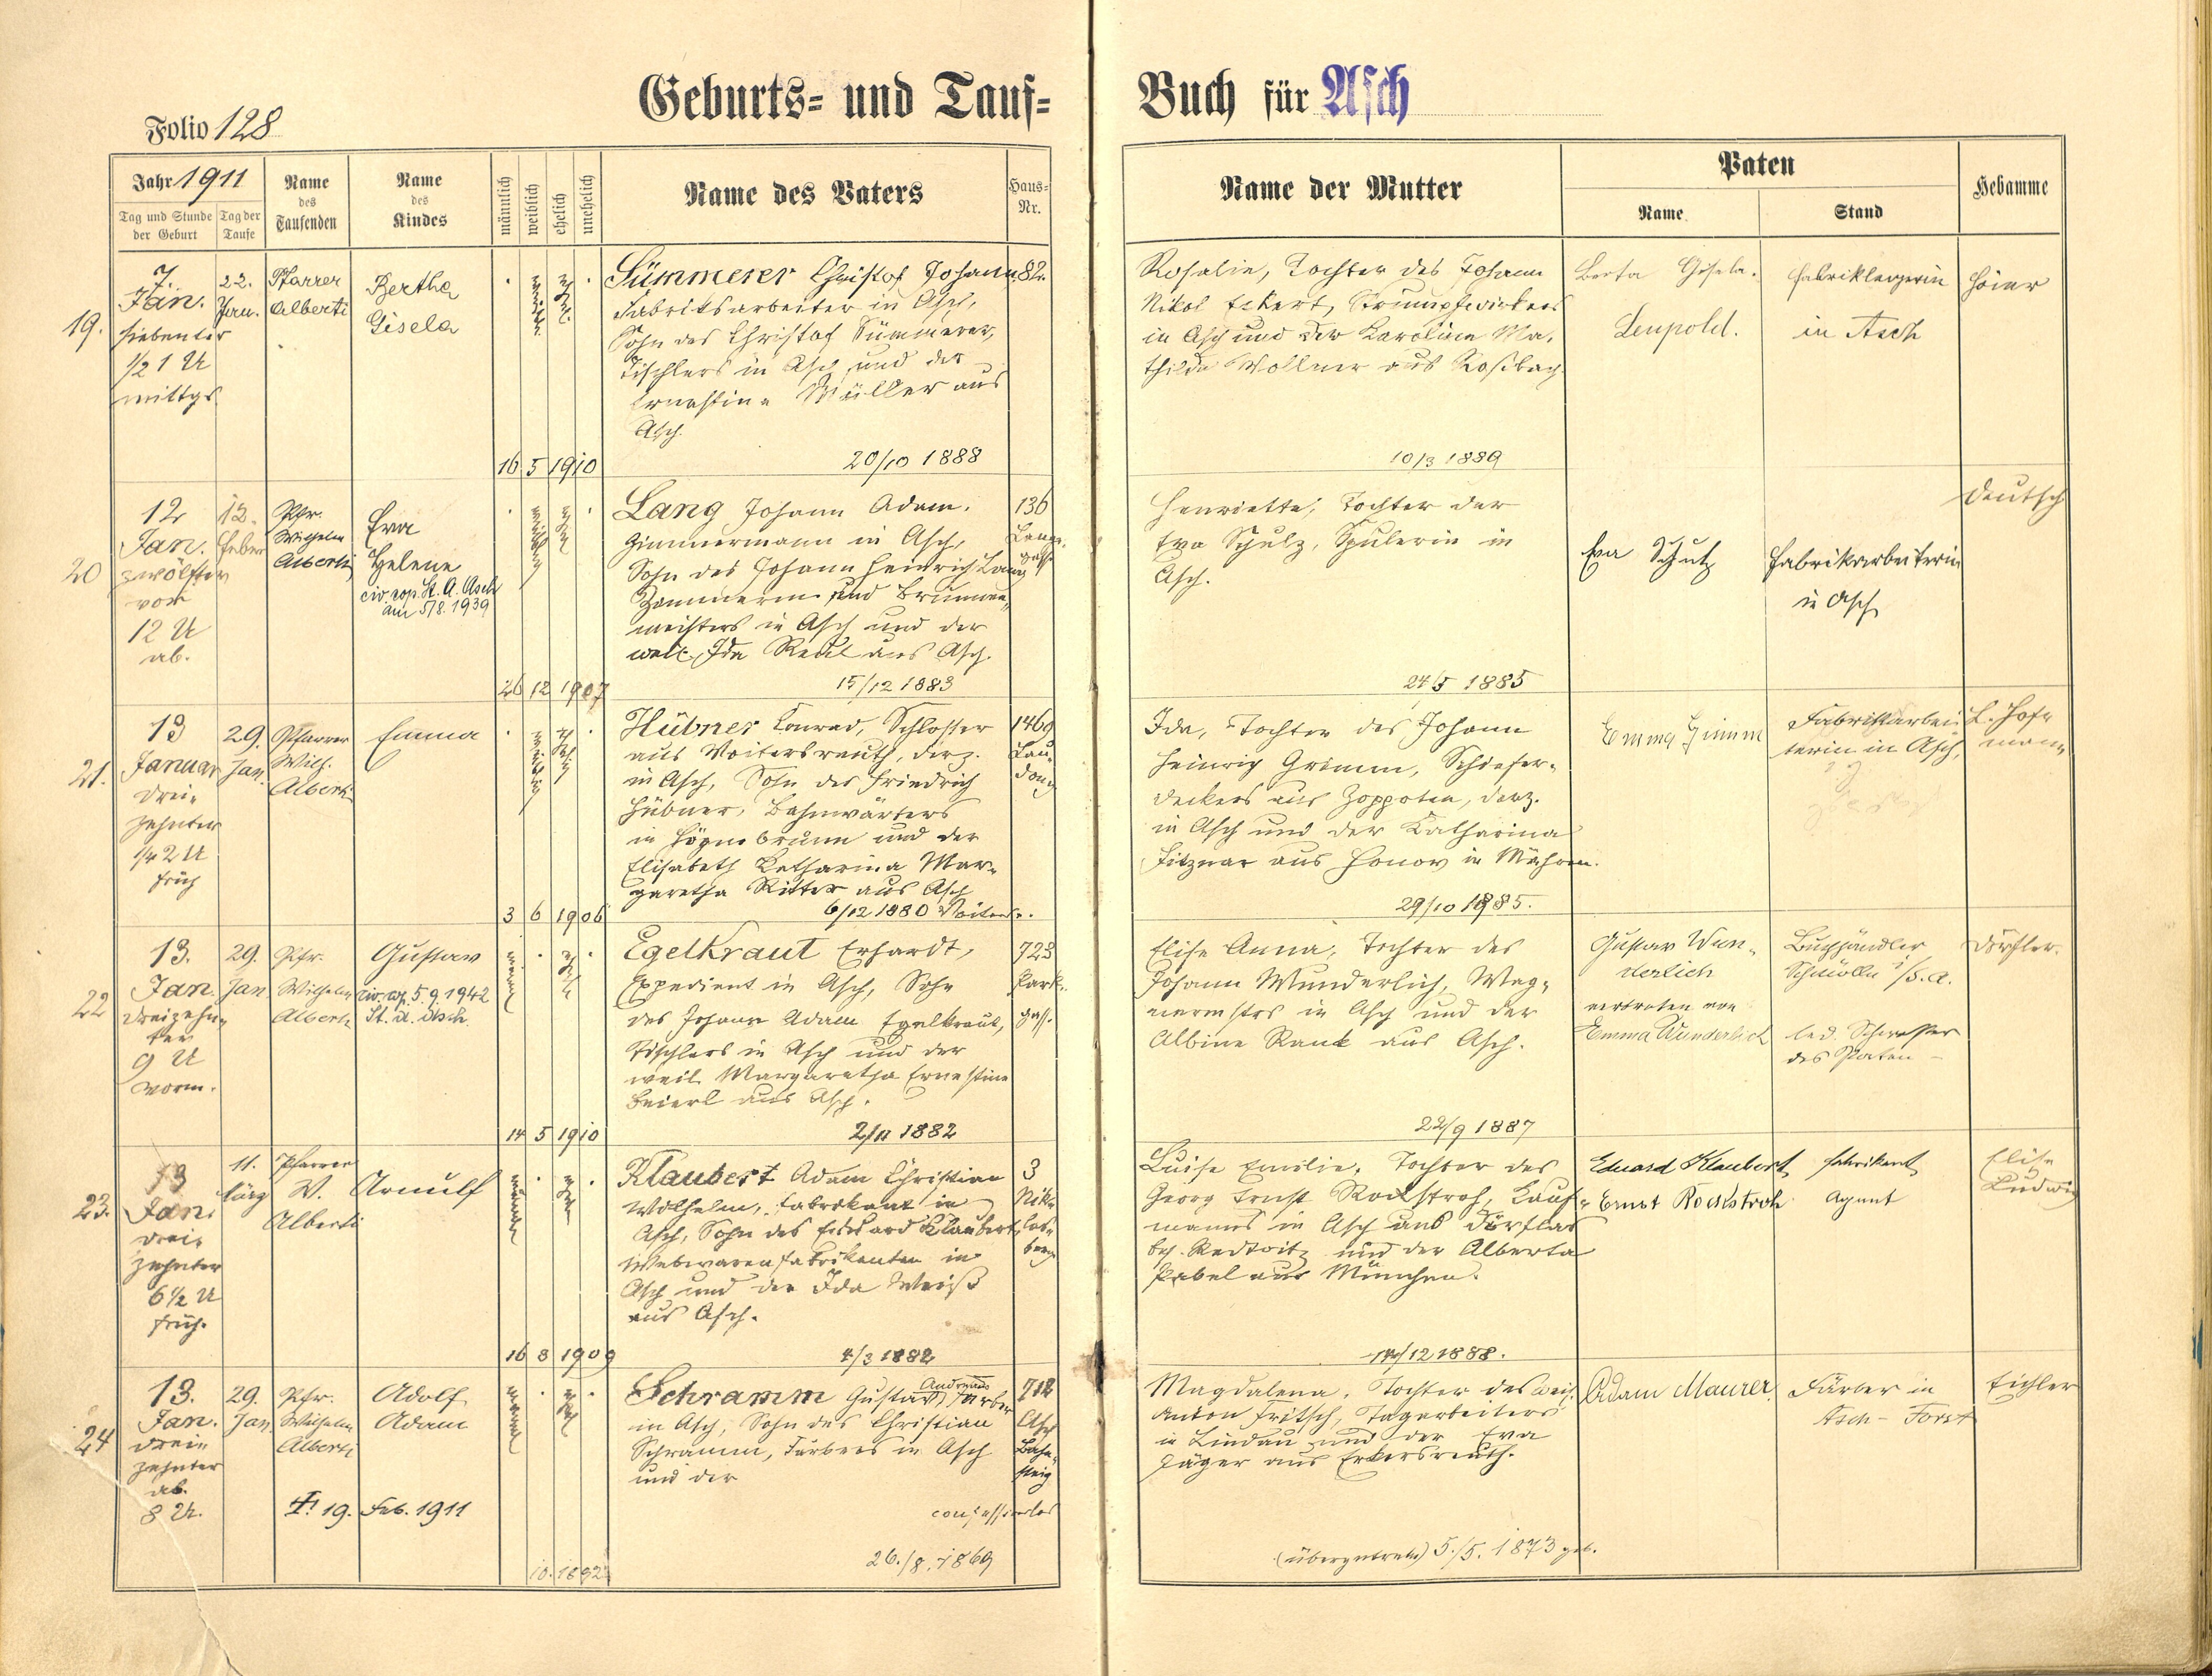 Geburts- und Tauf-
Buch für Asch
Folio 128
Jahr 1911
Tag und Stunde der Geburt
Tag der Taufe
Name des Taufenden
Name des Kindes
männlich
weiblich
ehelich
unehelich
Name des Vaters
Haus-Nr.
Name der Mutter
Paten
Name
Stand
Hebamme
19.
7.
Jan.
siebenter
1/2 1 U
mittgs.
22.
Jan.
Pfarrer
Alberti
Bertha
Gisela
Sümmerer Christof Johann
Fabriksarbeiter in Asch,
Sohn des Christof Sümmerer,
Tischlers in Asch und der
Ernestine Müller aus
Asch.
16 5 1910
20/10 1888
82
Rosalie, Tochter des Johann
Nikol Eckert, Strumpfwirkers
in Asch und der Karoline Ma-
thilde Wollner aus Roßbach
10/3 1889
Berta Gisela
Leupold.
in Asch
20
12
Jan.
zwölfter
12 U
ab.
12.
Feber
Pfr.
Wilhelm
Alberti
Eva
Helene
civ. cop. St. A. Asch
am 5/8. 1939
Lang Johann Adam.
Zimmermann in Asch,
Sohn des Johann Heinrich Lang
Zimmerm. und Brunnen-
meisters in Asch und der
weil. Ida aus Asch.
26 12 1907
15/12 1883
136
Lange
gasse
Henriette, Tochter der
Eva Schulz, Spulerin in
Asch.
24/5 1885
Eva
Fabrikarbeiterin
in Asch
Deutsch
21.
13
Januar
drei-
zehnter
1/4 2 U
früh
29.
Jan.
Pfarrer
Wilh.
Alberti
Emma
Hübner Konrad, Schlosser
aus Voitersreuth, derz.
in Asch, Sohn des Friedrich
Hübner, Bahnwärters
in und der
Elisabeth Katharina Mar-
garetha Ritter aus Asch
3 6 1906
6/12 1880
1469
Lau-
dong
Ida, Tochter des Johann
Heinrich Grimm, Schiefer-
deckers aus Zoppoten, derz.
in Asch und der Katharina
aus in Mähren.
29/10 1885.
Emma Grimm
Fabriksarbei-
terin in Asch,
L. Hof-
mann
22
13.
Jan.
dreizehn-
ter
9 U
vorm.
29.
Jan
Pfr.
Wilhelm
Alberti
Gustav
civ. cop. 5.9.1942
St. A. Asch.
Egelkraut Erhardt,
Expedient in Asch, Sohn
des Johann Adam Egelkraut,
Tischlers in Asch und der
weil. Margaretha Ernestine
Beierl aus Asch.
14 5 1910
2/11 1882
723
Park-
gass.
Elise Anna, Tochter des
Johann Wunderlich, Wag-
nermstrs in Asch und der
Albine Rank aus Asch.
22/9 1887
Gustav Wun-
derlich
vertreten von
Emma Wunderlich
Buchhändler
Schmölln i/S. A.
led. Schwester
des Paten
Dörfler.
23.
13
Jan.
drei-
zehnter
6 1/2 U
früh.
11.
März
Pfarrer
W.
Alberti
Arnulf
Klaubert Adam Christian
Wilhelm, Fabrikant in
Asch, Sohn des Eduard Klaubert,
Webwarenfabrikanten in
Asch und der Ida Weiß
aus Asch.
16 8 1909
4/3 1882
3
Niko-
las-
berg
Luise Emilie, Tochter des
Georg Ernst Rockstroh, Kauf-
manns in Asch aus Dörflas
bei Redwitz und der Alberta
aus München.
14/12 1888.
Eduard Klaubert
Ernst Rockstroh
Fabrikant
Agent
Elise
Ludwig
24
13.
Jan.
drei-
zehnter
ab.
8 U.
29.
Jan.
Pfr.
Wilhelm
Alberti
Adolf
Adam
† 19. Feb. 1911
Andreas
Schramm Gustav, Färber
in Asch, Sohn des Christian
Schramm, Färbers in Asch
und der
confessionslos
26./8. 1869
712
Asch
Bahn-
steig
Magdalena, Tochter des weil.
Anton Fritsch, Tagarbeiters
in Lindau und der Eva
Jäger aus Erkersreuth.
(übergetreten) 5./5. 1873 geb.
Adam Maurer
Färber in
Asch - Forst
Eichler